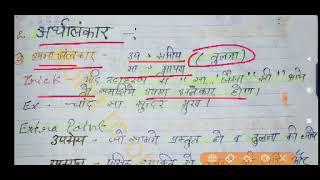 2. अर्थालंकार :-
① उपमा अलंकार - उप - समीप ( तुलना )
मा - मापना
Trick यदि उदाहरण में "सा" "जैसा" "सी" आये
तो उपमा अलंकार होगा।
Ex - चाँद सा सुन्दर मुख।
Extra Point
उपमेय - जो सामने प्रस्तुत हो व तुलना की
उपमान -